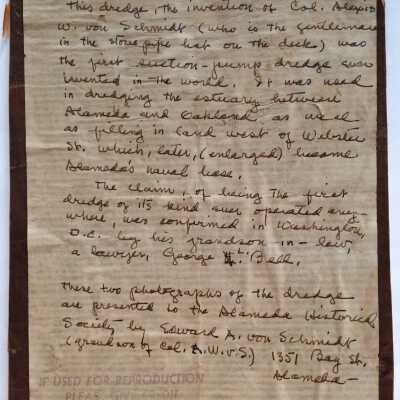 This dredge, the invention of Col. Alexis
W. von Schmidt (who is the gentleman
in the stove pipe hat on the deck) was
the first suction-pump dredge ever
invented in the world. It was used
in dredging the estuary between
Alameda and Oakland as well
as filling in land west of Webster
St. which, later, (enlarged) became
Alameda's naval base.
The claim, of being the first
dredge of its kind ever operated any-
where, was confirmed in Washington,
D.C. by his grandson in-law,
a lawyer, George Bell.
These two photographs of the dredge
are presented to the Alameda Historical
Society by Edward A. von Schmidt
(grandson of Col. A.W.v.S.) 1351 Bay St.
Alameda-
IF USED FOR REPRODUCTION
PLEASE GIVE CREDIT